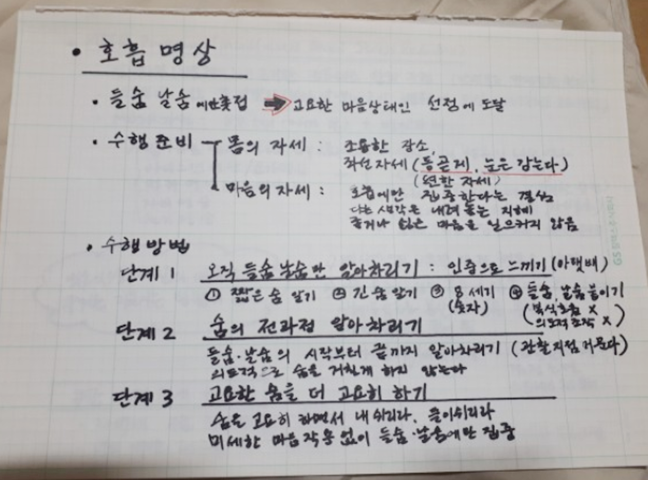 • 호흡 명상
• 들숨 날숨에만 집중 ➡ 고요한 마음상태인 선정에 도달
• 수행 준비 몸의 자세 : 조용한 장소,
좌선자세 (등곧게, 눈은 감는다)
(편한 자세)
마음의 자세 : 호흡에만 집중한다는 결심
다른 생각은 내려 놓는 지혜
좋거나 싫은 마음을 일으키지 않음
• 수행방법
단계 1 오직 들숨날숨만 알아차리기 : 인중으로 느끼기 (아랫배)
① 짧은 숨 알기 ② 긴 숨 알기 ③ 8 세기 ④ 들숨, 날숨 붙이기
(숫자) (복식호흡 X
의도적 조작 X)
단계 2 숨의 전과정 알아차리기
들숨·날숨의 시작부터 끝까지 알아차리기 (관찰지점 머문다)
의도적으로 숨을 거칠게 하지 않는다
단계 3 고요한 숨을 더 고요히 하기
숨을 고요히 하면서 내쉬리라, 들이쉬리라
미세한 마음작용없이 들숨·날숨에만 집중